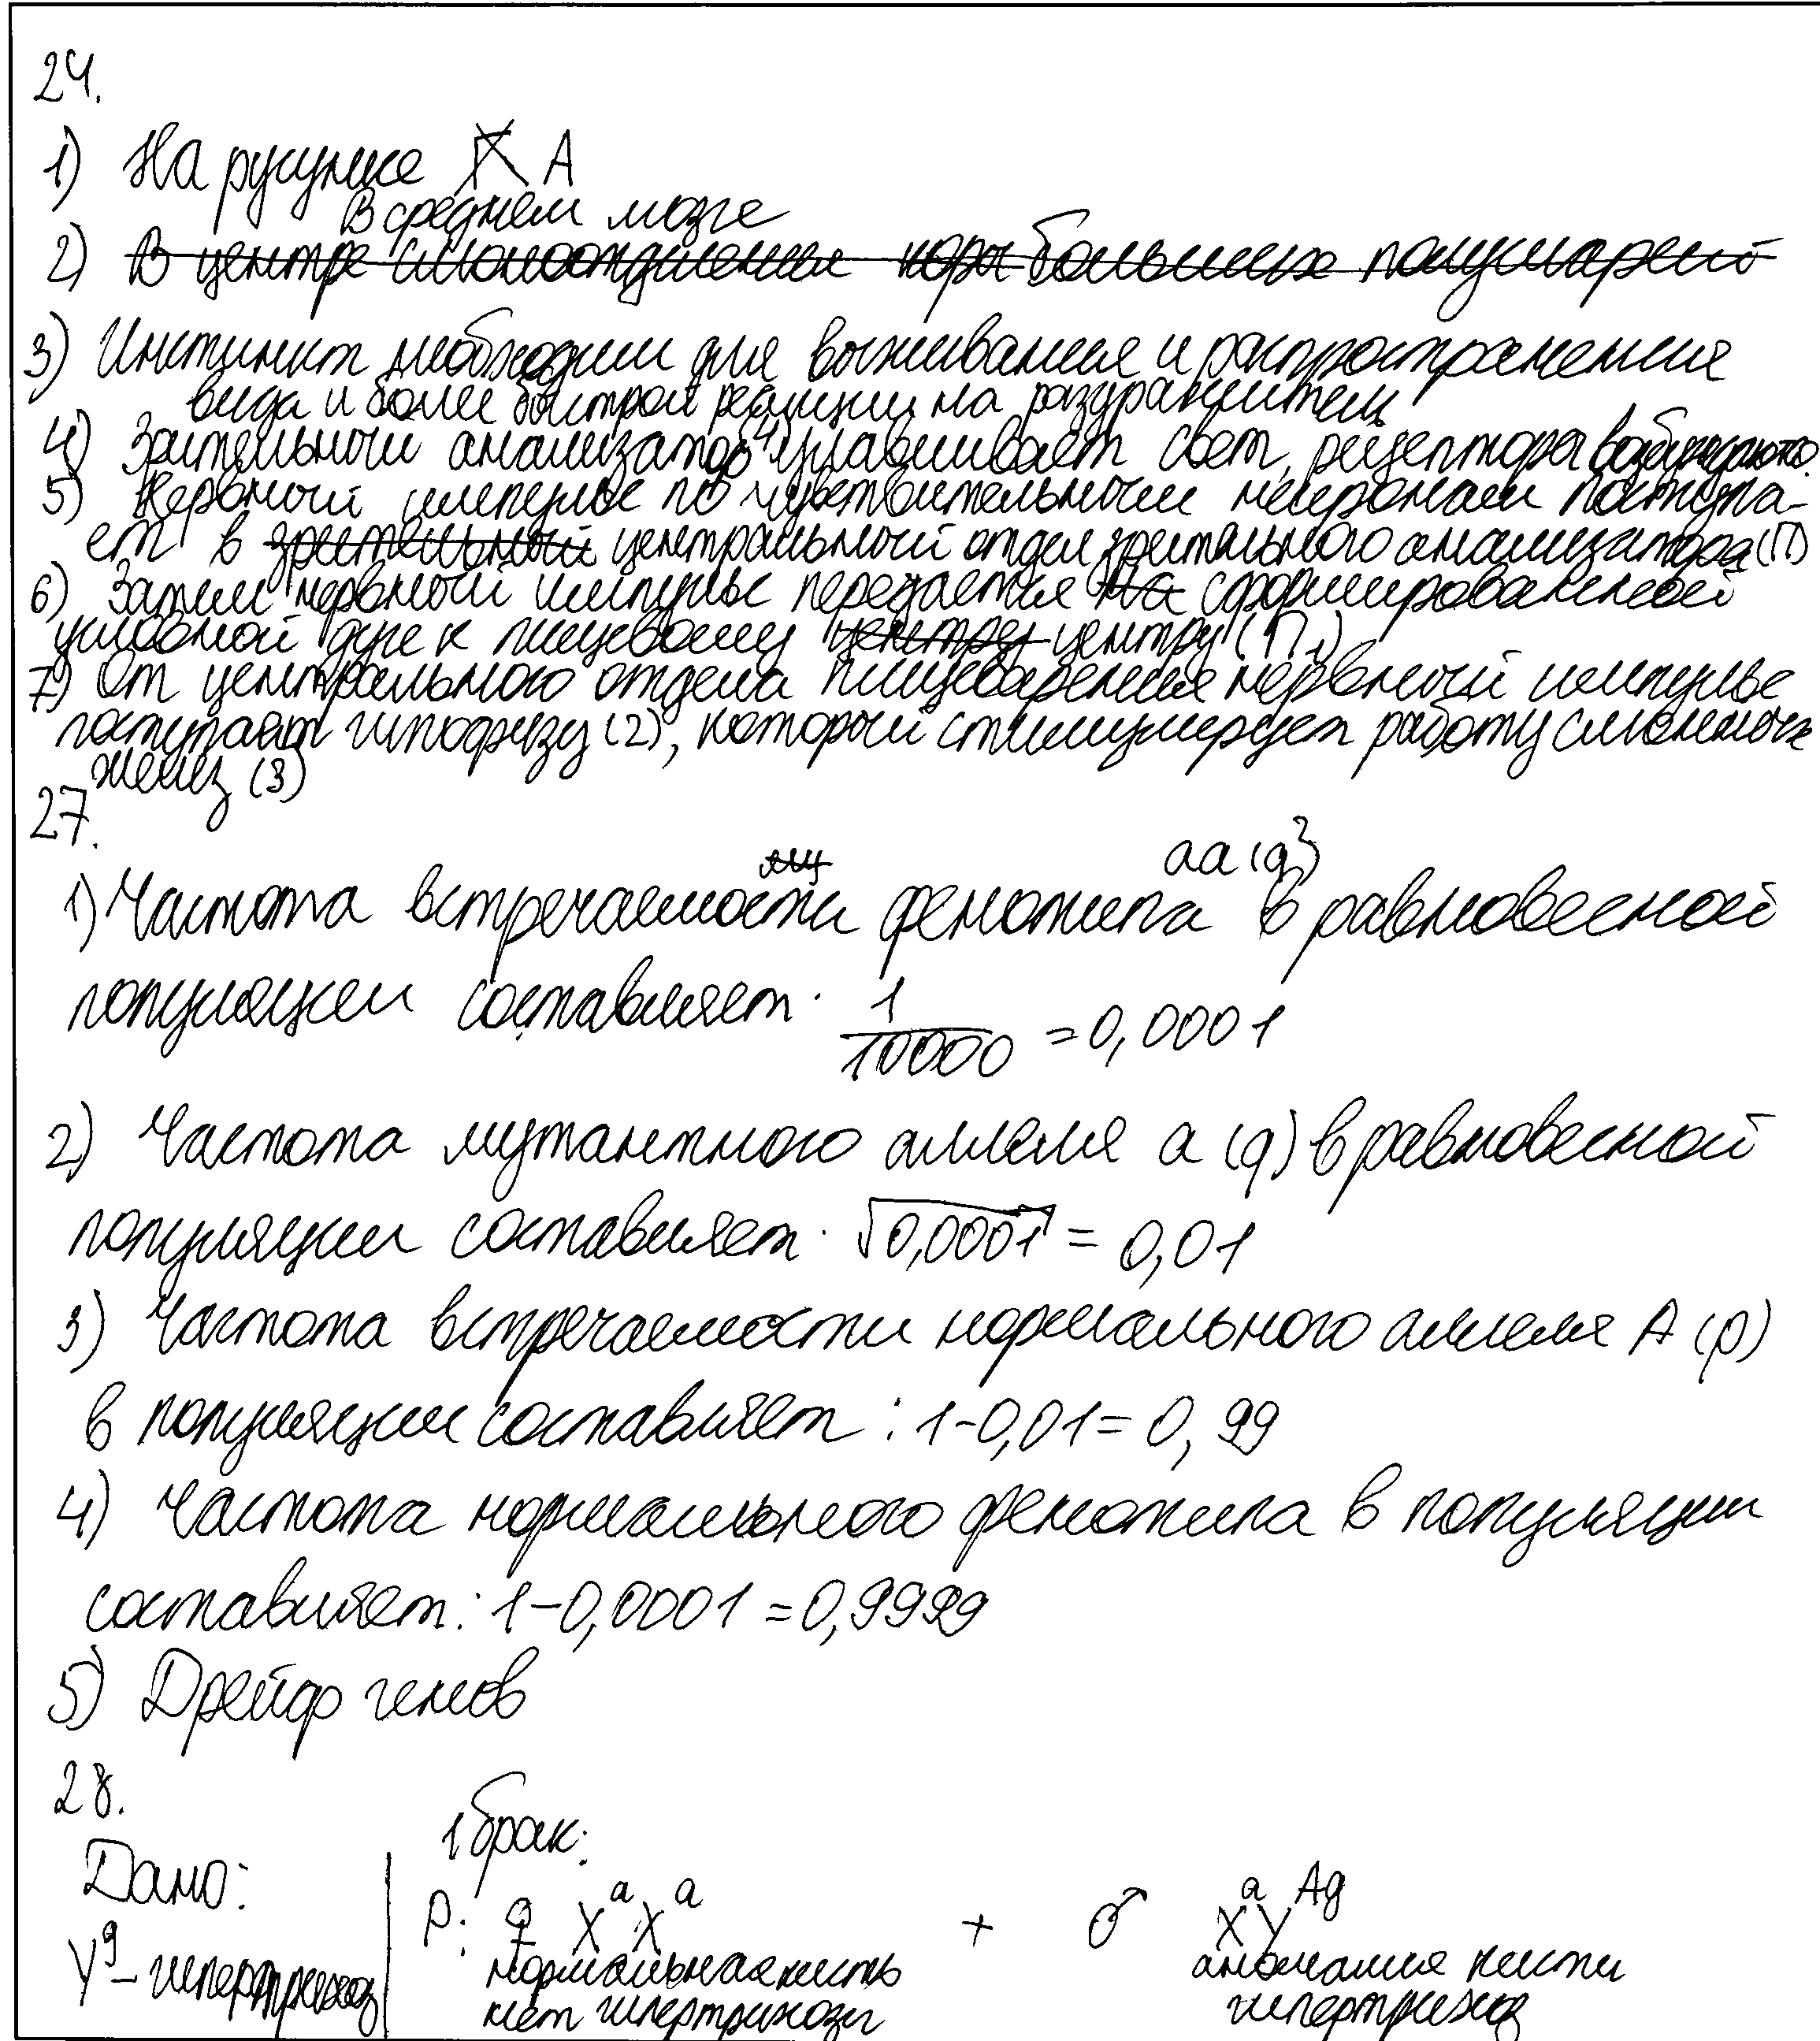 24.
1) На рисунке А
В среднем мозге
2) В центре слюноотделения коры больших полушарий
3) Инстинкт необходим для выживания и распространения
вида и более быстрой реакции на раздражитель
4) Зрительный анализатор улавливает свет, рецептора возбуждаются.
5) Нервный импульс по чувствительным нейронам поступа-
ет в зрительный центральный отдел зрительного анализатора (П)
6) Затем нервный импульс передаётся на сформированной
условной дуге к пищевому центру центру (П1)
7) От центрального отдела пищеварения нервный импульс
поступает гипофизу (2), который стимулирует работу слюнных
желез (3)
27.
1) Частота встречаемости фенотипа aa (q²) в равновесной
популяции составляет: 1/10000 = 0,0001
2) Частота мутантного аллеля a (q) в равновесной
популяции составляет: √0,0001 = 0,01
3) Частота встречаемости нормального аллеля A (p)
в популяции составляет: 1-0,01 = 0,99
4) Частота нормального фенотипа в популяции
составляет: 1-0,0001 = 0,9999
5) Дрейф генов
28.
1 брак:
Дано:
P: ♀ XᵃXᵃ + ♂ XᵃYᴬᵍ
Yᵍ - гипертрихоз
нормальная кисть
аномалия кисти
нет гипертрихоза
гипертрихоз